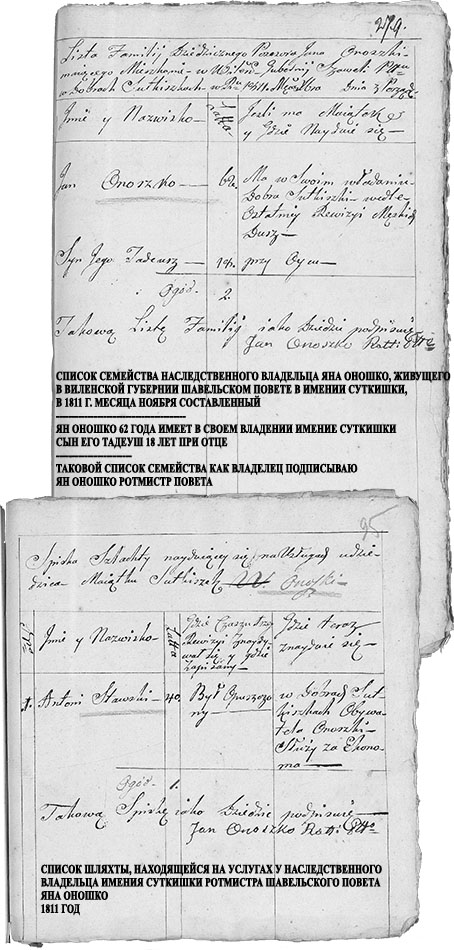 279.
Lista Familij Dziedzicznego Possesora Jana Onoszki
w Dobrach Sutkiszkach
Imie y Nazwisko
Latta
Jesli ma Maiątek
y Gdzie Nayduie się
Jan Onoszko
62.
Ma w Swoim władaniu
Dobra Sutkiszki wedle
Ostatniey Rewizyi Męskich
Dusz
Syn Jego Tadeusz
18.
przy Oycu
Ogół 2.
Takową Listę Familij iako Dziedzic podpisuię
Jan Onoszko Rott: Ptto
СПИСОК СЕМЕЙСТВА НАСЛЕДСТВЕННОГО ВЛАДЕЛЬЦА ЯНА ОНОШКО, ЖИВУЩЕГО
В ВИЛЕНСКОЙ ГУБЕРНИИ ШАВЕЛЬСКОМ ПОВЕТЕ В ИМЕНИИ СУТКИШКИ,
В 1811 Г. МЕСЯЦА НОЯБРЯ СОСТАВЛЕННЫЙ
ЯН ОНОШКО 62 ГОДА ИМЕЕТ В СВОЕМ ВЛАДЕНИИ ИМЕНИЕ СУТКИШКИ
СЫН ЕГО ТАДЕУШ 18 ЛЕТ ПРИ ОТЦЕ
ТАКОВОЙ СПИСОК СЕМЕЙСТВА КАК ВЛАДЕЛЕЦ ПОДПИСЫВАЮ
ЯН ОНОШКО РОТМИСТР ПОВЕТА
95
Spiska Szlachty nayduiącey się na Usługach u dzie-
dzica Maiątku Sutkiszek Onoszki
Imie y Nazwisko
Latta
Gdzie Czasu
Rewizyi Znaydy-
wał się y gdzie
Zapisany
Gdzie teraz
znayduie się
1. Antoni Stawski
40.
Był Opuszczo-
ny
w Dobrach Sut-
kiszkach Obywa-
tela Onoszki
Służy za Ekono-
ma
Ogół 1.
Takową Spiskę iako Dziedzic podpisuię
Jan Onoszko Rott: Ptto
СПИСОК ШЛЯХТЫ, НАХОДЯЩЕЙСЯ НА УСЛУГАХ У НАСЛЕДСТВЕННОГО
ВЛАДЕЛЬЦА ИМЕНИЯ СУТКИШКИ РОТМИСТРА ШАВЕЛЬСКОГО ПОВЕТА
ЯНА ОНОШКО
1811 ГОД